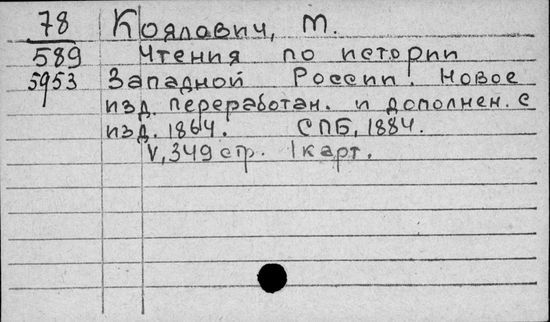 78 Коялавич, М.
589 Чтения по истории
5953 Западной России. Новое
изд. переработан. и дополнен. с
изд. 1864. СПБ, 1884.
V, 349 стр. 1 карт.